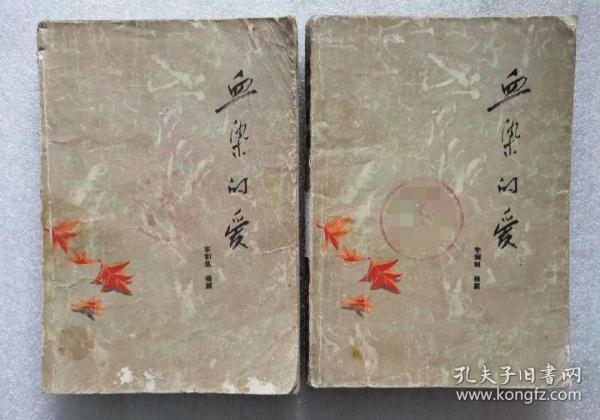 血染的爱
血染的爱
孔夫子旧书网
www.kongfz.com